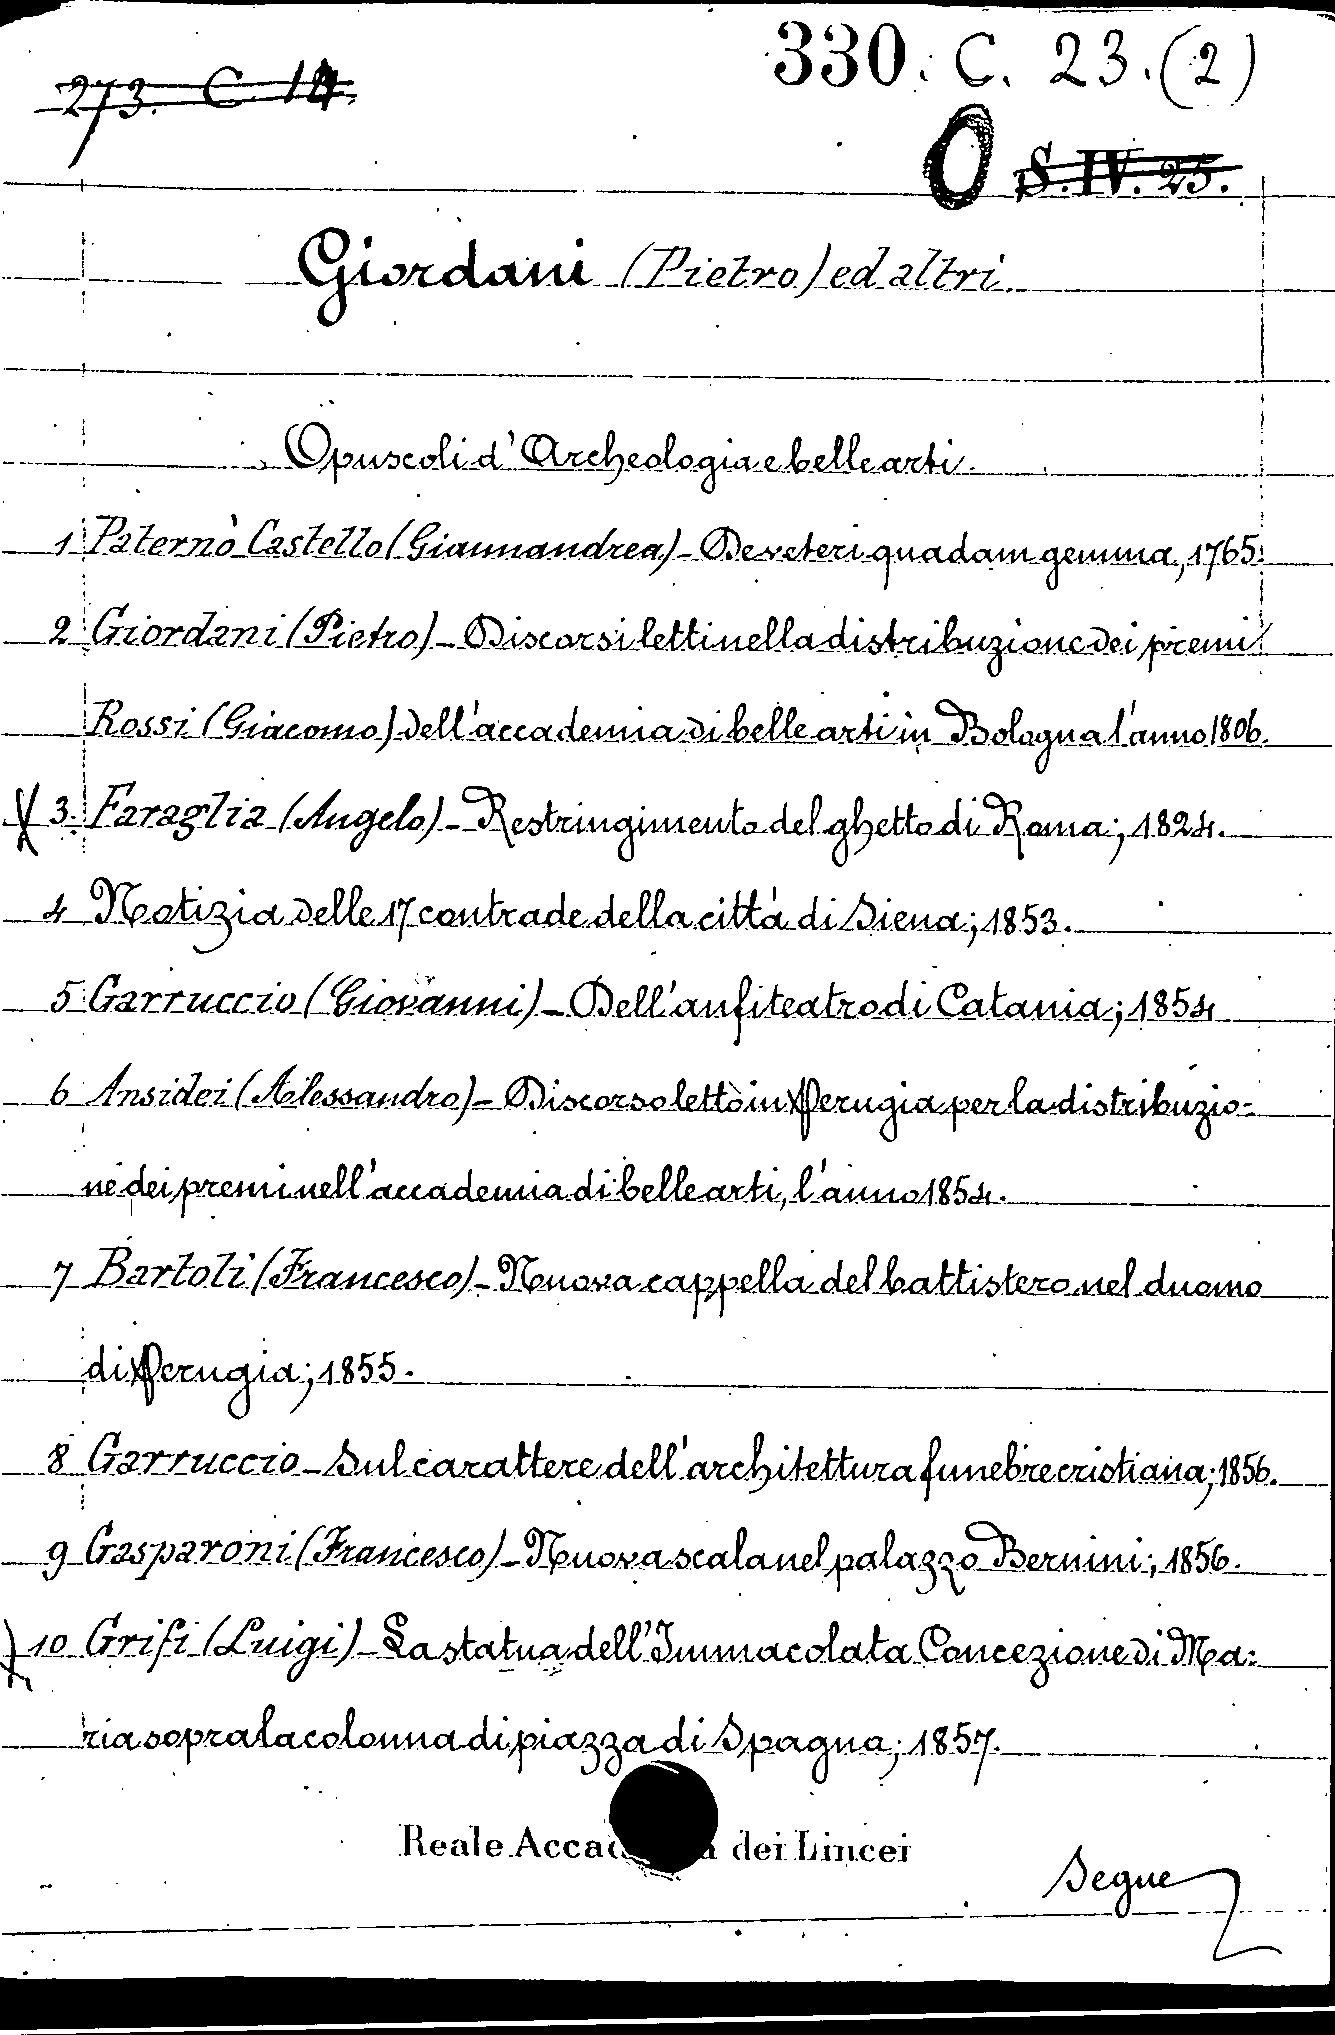 330. C. 23. (2)
273. C 14.
O S. IV. 25.
Giordani (Pietro) ed altri.
Opuscoli d'Archeologia e belle arti.
1 Paternò Castello (Giannandrea) - De veteri quadam gemma, 1765.
2 Giordani (Pietro) - Discorsi letti nella distribuzione dei premi
Rossi (Giacomo) dell'accademia di belle arti in Bologna l'anno 1806.
3. Faraglia (Angelo) - Restringimento del ghetto di Roma; 1824.
4 Notizia delle 17 contrade della città di Siena; 1853.
5 Garruccio (Giovanni) - Dell'anfiteatro di Catania; 1854
6 Ansidei (Alessandro) - Discorso letto in Perugia per la distribuzio=
ne dei premi nell'accademia di belle arti, l'anno 1854.
7 Bartoli (Francesco) - Nuova cappella del battistero nel duomo
di Perugia; 1855.
8 Garruccio - Sul carattere dell'architettura funebre cristiana; 1856.
9 Gasparoni (Francesco) - Nuova scala nel palazzo Bernini; 1856.
10 Grifi (Luigi) - La statua dell'Immacolata Concezione di Ma=
ria sopra la colonna di piazza di Spagna; 1857.
Reale Acca a dei Lincei
Segue